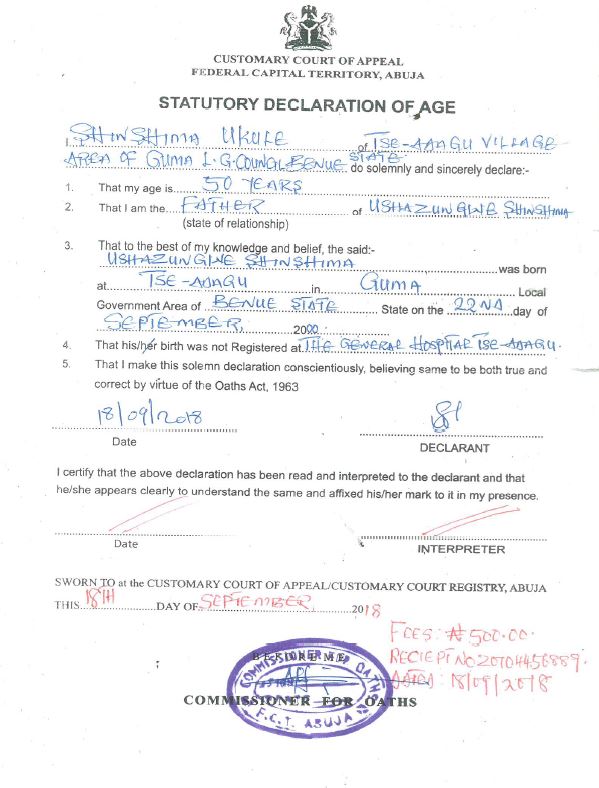 CUSTOMARY COURT OF APPEAL
FEDERAL CAPITAL TERRITORY, ABUJA
STATUTORY DECLARATION OF AGE
I SHINSHIMA UKULE of TSE-AAAGU VILLAGE
AREA OF GUMA L.G. COUNCIL BENUE STATE do solemnly and sincerely declare:-
1. That my age is 50 YEARS
2. That I am the FATHER of USHAZUNGWE SHINSHIMA
(state of relationship)
3. That to the best of my knowledge and belief, the said:-
USHAZUNGWE SHINSHIMA was born
at TSE-AAAGU in GUMA Local
Government Area of BENUE STATE State on the 22ND day of
SEPTEMBER, 2000
4. That his/her birth was not Registered at THE GENERAL HOSPITAL TSE-AAAGU.
5. That I make this solemn declaration conscientiously, believing same to be both true and
correct by virtue of the Oaths Act, 1963
18/09/2018
Date DECLARANT
I certify that the above declaration has been read and interpreted to the declarant and that
he/she appears clearly to understand the same and affixed his/her mark to it in my presence.
Date INTERPRETER
SWORN TO at the CUSTOMARY COURT OF APPEAL/CUSTOMARY COURT REGISTRY, ABUJA
THIS 18TH DAY OF SEPTEMBER, 2018
FEES: ₦500.00.
RECIEPT NO 20104456889.
DATED: 18/09/2018
BEFORE ME
COMMISSIONER FOR OATHS
COMMISSIONER FOR OATHS
F.C.T. ABUJA